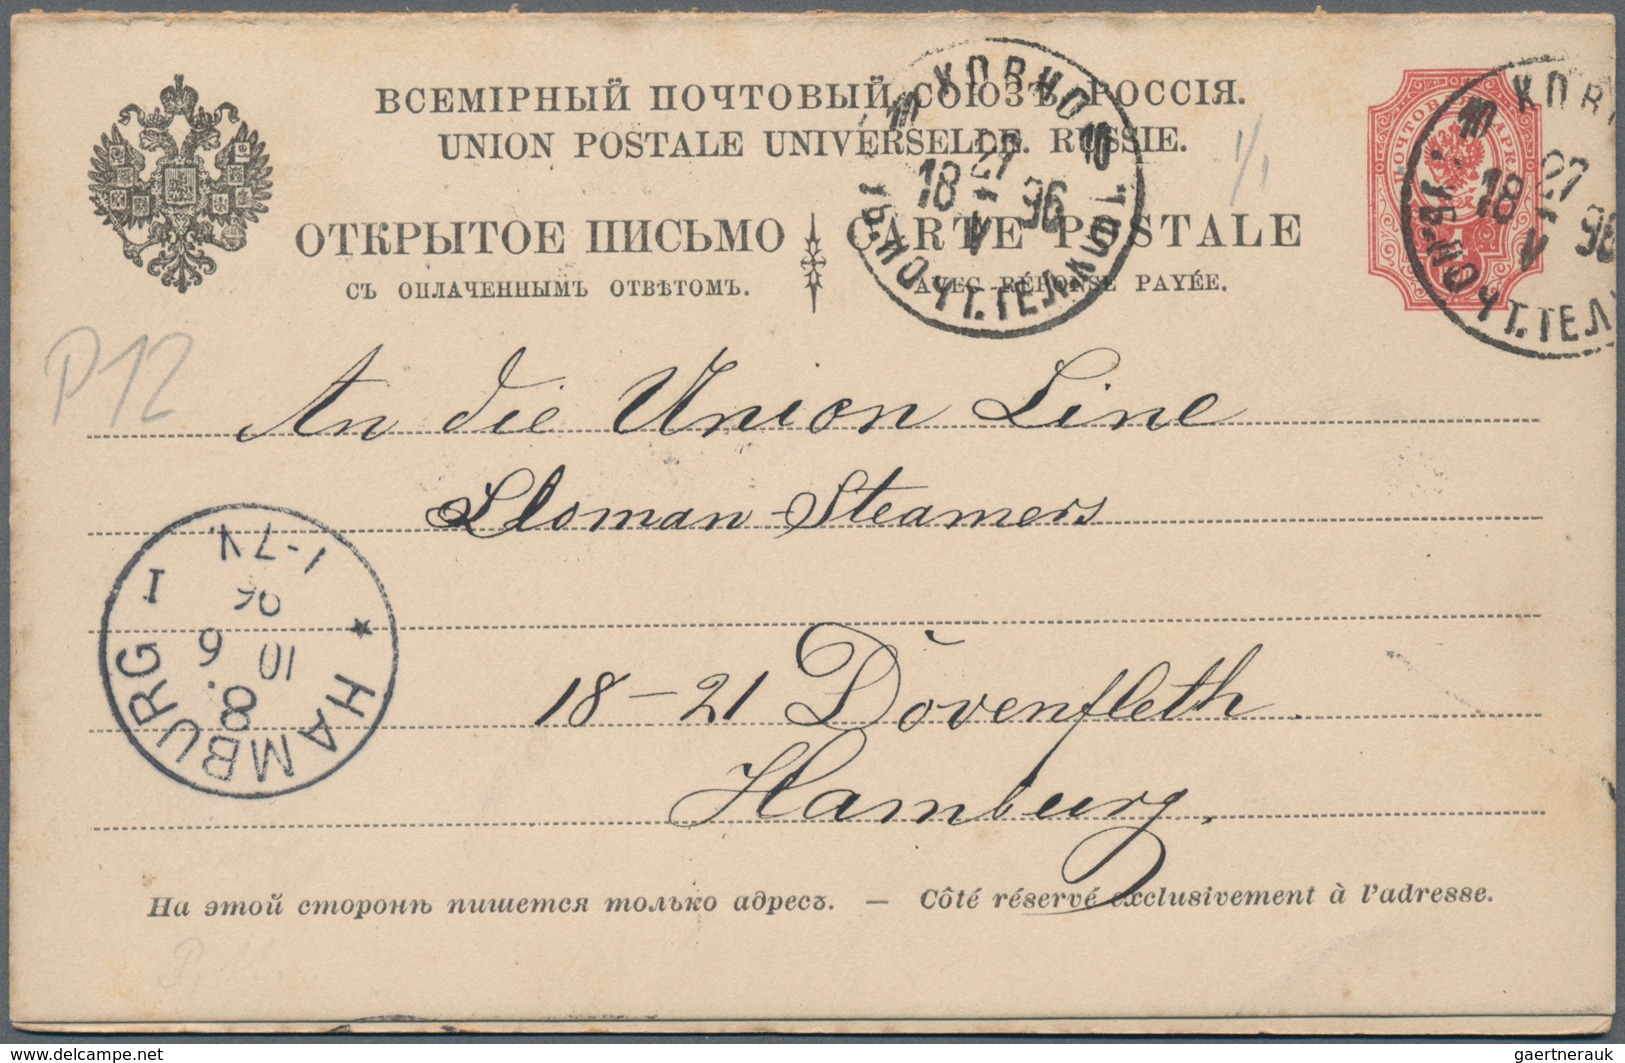 ВСЕМІРНЫЙ ПОЧТОВЫЙ СОЮЗЪ. РОССІЯ.
UNION POSTALE UNIVERSELLE. RUSSIE.
ОТКРЫТОЕ ПИСЬМО
CARTE POSTALE
СЪ ОПЛАЧЕННЫМЪ ОТВѢТОМЪ.
AVEC RÉPONSE PAYÉE.
КОВНО
10 10
27
18 V 96
ПОЧТ. ТЕЛ.
КОВН
10
27
18 V 96
ПОЧТ. ТЕЛ
1/1
P12
An die Union Line
Sloman-Steamers
18-21 Dovenfleth.
Hamburg.
HAMBURG I
8.
10 6
96
1-7N.
На этой сторонѣ пишется только адресъ. — Côté réservé exclusivement à l'adresse.
www.delcampe.net
gaertnerauk